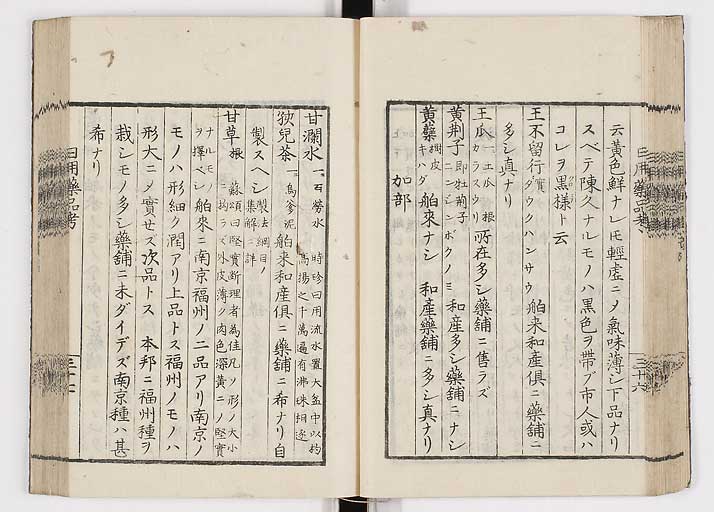 云黄色鮮ナレ𪜈輕虚ニメ氣味薄シ下品ナリ
スベテ陳久ナルモノハ黒色ヲ帶ブ市人或ハ
コレヲ黒様ト云
王不留行 實 ダウクハンサウ 舶来和産俱ニ藥舗ニ
多シ真ナリ
王瓜 一、土瓜 根 カラスウリ 所在多シ藥舗ニ售ラズ
黄荆子 即牡荊子 ニンジンボクノミ 和産多シ藥舗ニナシ
黄蘗 樹皮 キハダ 舶來ナシ 和產藥舗ニ多シ真ナリ
加部
日用藥品考
三十六
甘瀾水 一、百勞水 時珍曰用流水置大盆中以杓高揚之千萬遍有沸珠相逐
孩兒茶 一、烏爹泥 製法綱目ノ集解ニ詳 舶来和産俱ニ藥舗ニ希ナリ自
製スヘシ
甘草 根 蘇頌曰堅實斷理者為佳凡ソ形ノ大小ニ拘ラズ外皮薄ク肉色深黄ニノ堅實ナルモノヲ擇ベシ
舶來ニ南京福州ノ二品アリ南京ノ
モノハ形細ク潤アリ上品トス福州ノモノハ
形大ニメ實セズ次品トス 本邦ニ福州種ヲ
栽シモノ多シ藥舗ニ未ダイデズ南京種ハ甚
希ナリ
日用藥品考
三十七